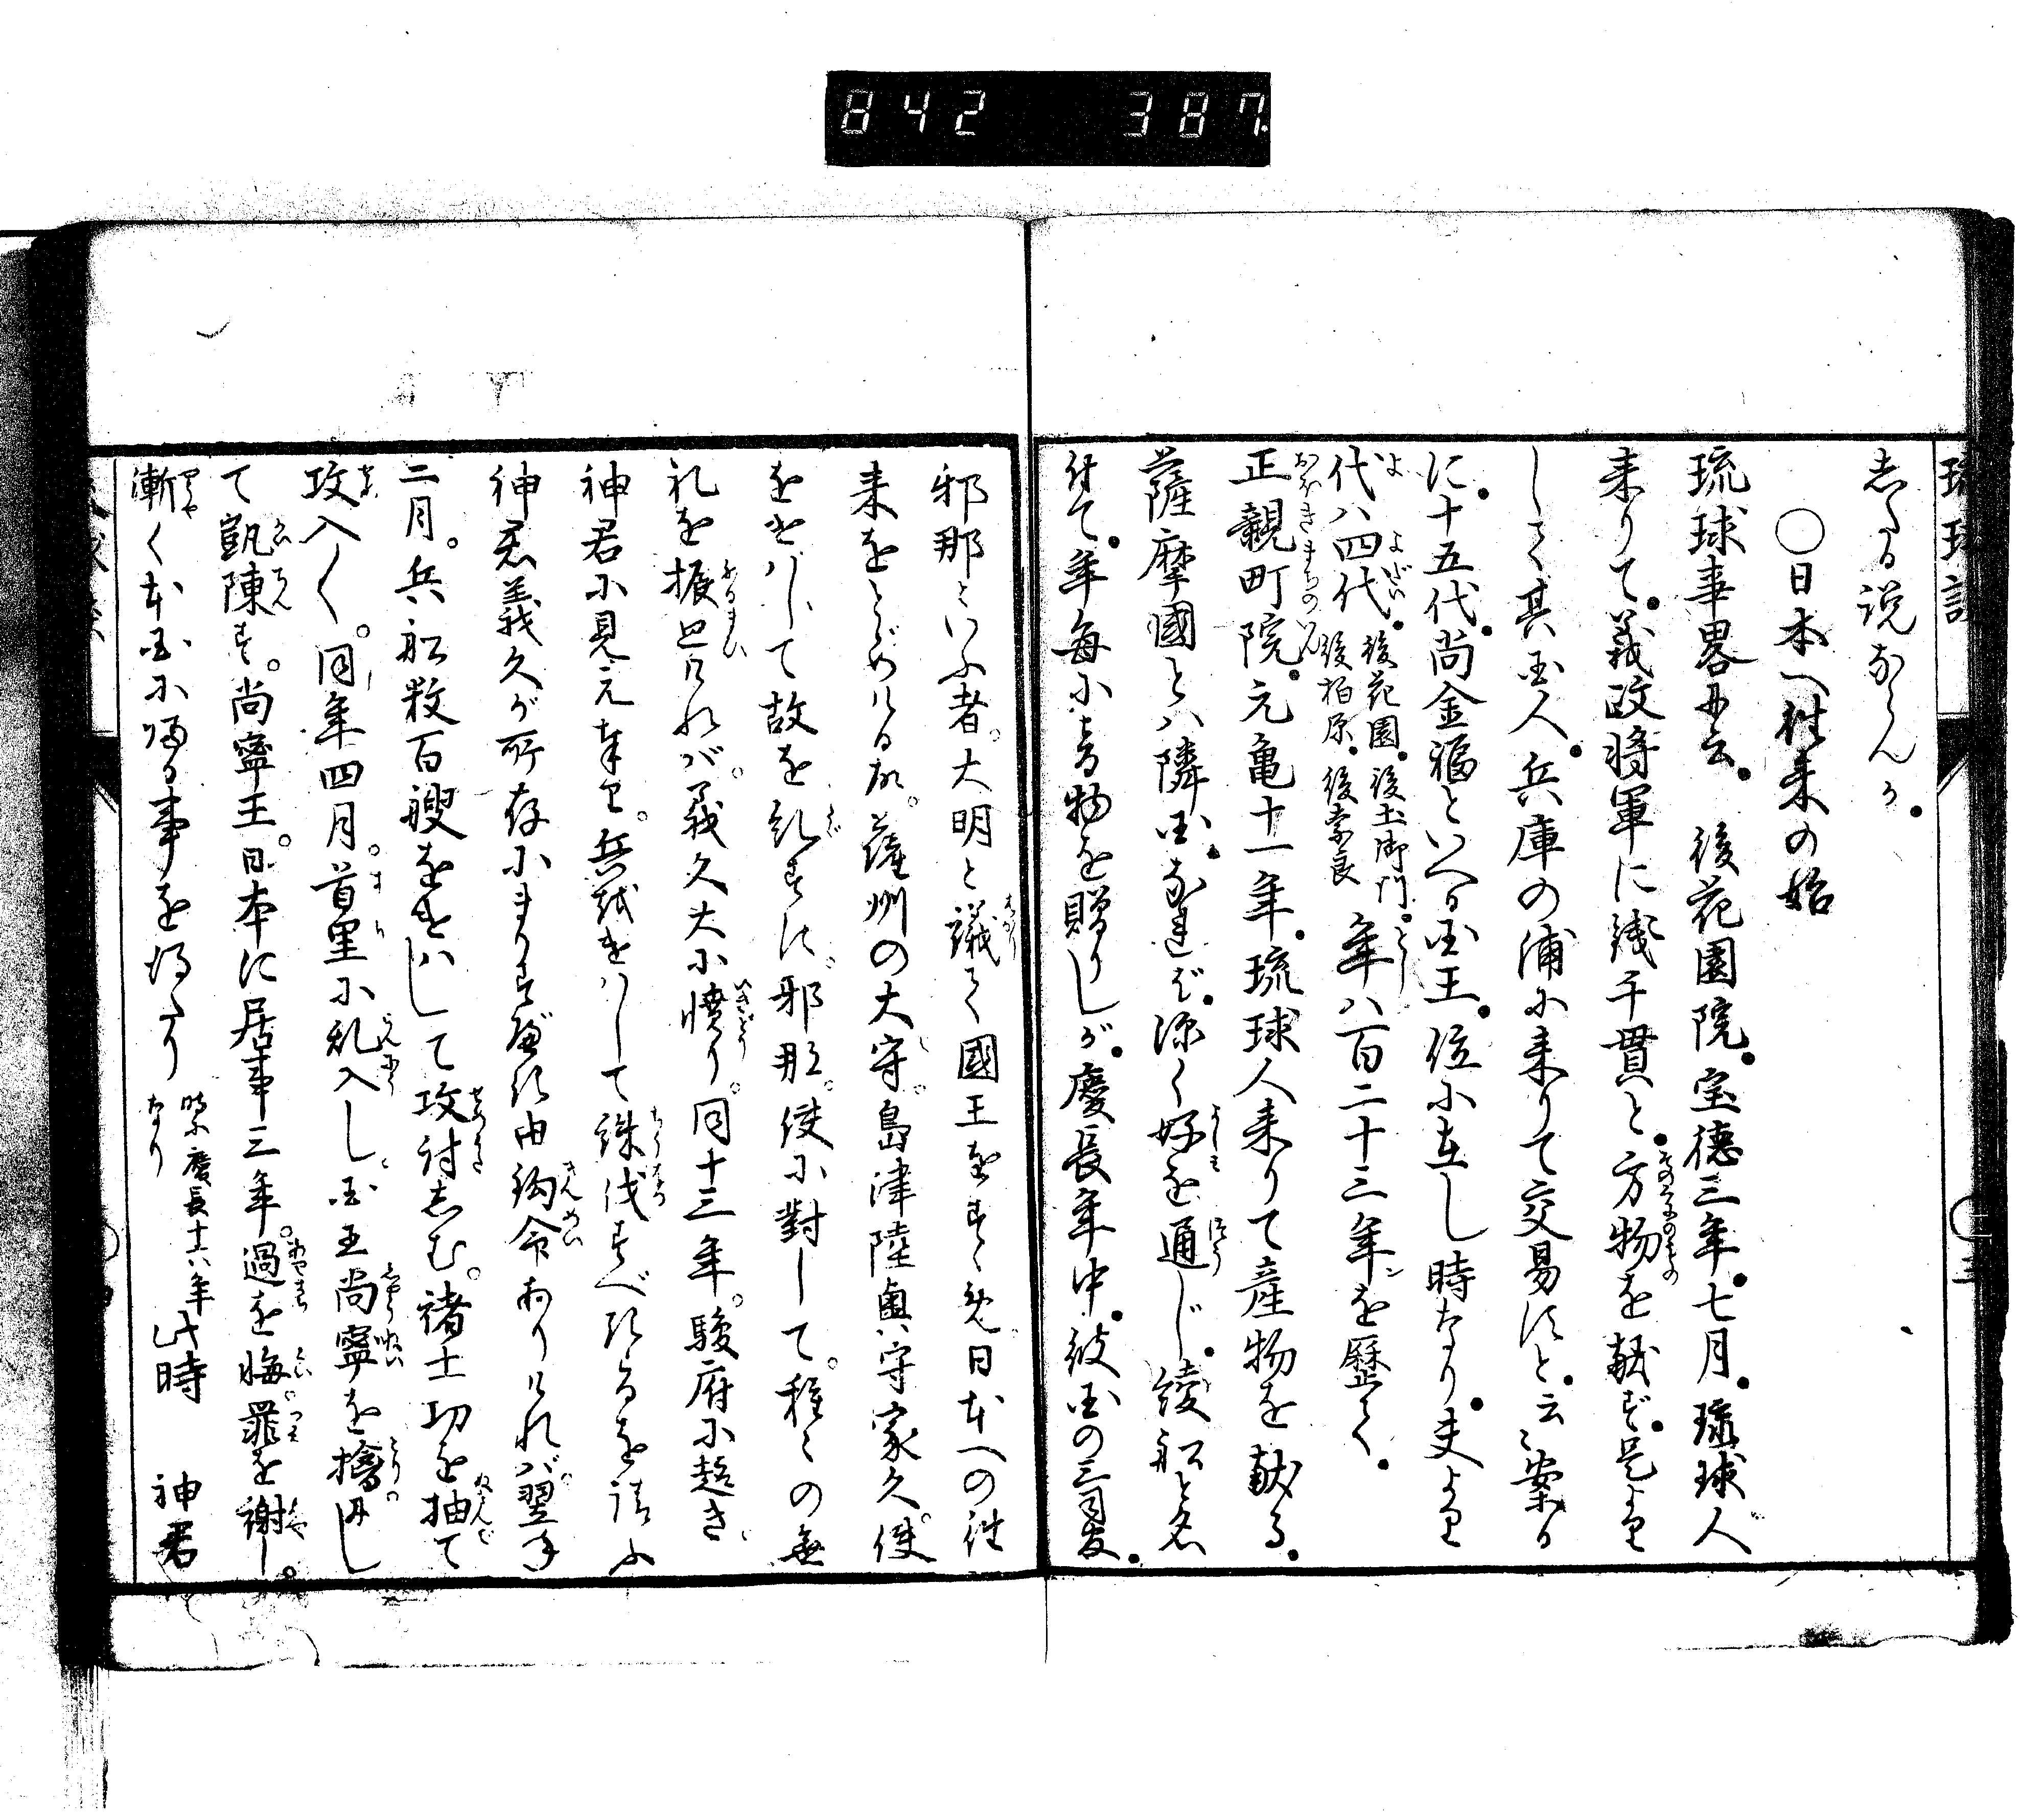 842 387
志たる説ならんか
〇日本へ往来の始
琉球事畧に云後花園院宝徳三年七月琉球人
来りて義政将軍に銭千貫と方物を献ず是より
して其国人兵庫の浦に来りて交易すと云々案る
に十五代尚金福といへる国王位に在し時なり夫より
代ハ四代後花園後土御門後柏原後奈良年ハ百二十三年を歴て
正親町院元亀十一年琉球人来りて産物を献る
薩摩國とハ隣国なれば深く好を通じ綾船と名
付て年毎に音物を贈りしが慶長年中彼国の三司官
邪那といふ者大明と議て國王をすゝめ日本への往
来をとゞめける故薩州の大守島津陸奥守家久使
をつかハして故を糺すに邪那使に對して種々の無
礼を振まひけれバ義久大に憤り同十三年駿府に趣き
神君に見え奉り兵船をつかハして誅伐すべきよしを請ふ
神君義久が所存にまかすべき由鈞命ありけれバ翌年
二月兵船数百艘をつかハして攻討志む諸士功を抽て
攻入く同年四月首里に乱入し国王尚寧を擒にし
て凱陳す尚寧王日本に居事三年過を悔罪を謝し
漸く本国に帰る事を得たり時に慶長十六年なり此時 神君